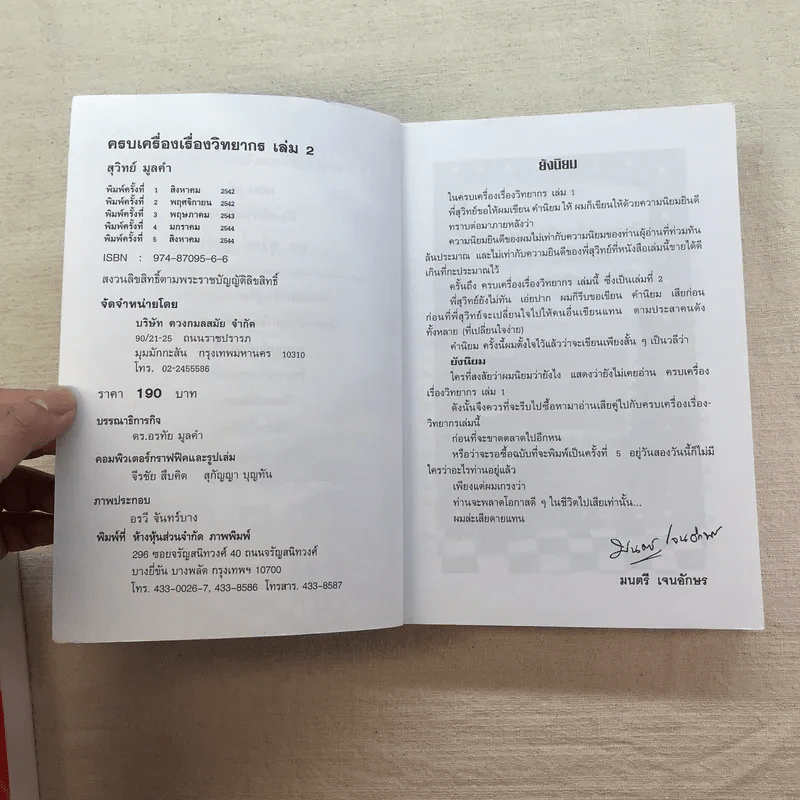 ครบเครื่องเรื่องวิทยากร เล่ม 2
สุวิทย์ มูลคำ
พิมพ์ครั้งที่ 1 สิงหาคม 2542
พิมพ์ครั้งที่ 2 พฤศจิกายน 2542
พิมพ์ครั้งที่ 3 พฤษภาคม 2543
พิมพ์ครั้งที่ 4 มกราคม 2544
พิมพ์ครั้งที่ 5 สิงหาคม 2544
ISBN : 974-87095-6-6
สงวนลิขสิทธิ์ตามพระราชบัญญัติลิขสิทธิ์
จัดจำหน่ายโดย
บริษัท ดวงกมลสมัย จำกัด
90/21-25 ถนนราชปรารภ
มุมมักกะสัน กรุงเทพมหานคร 10310
โทร. 02-2455586
ราคา 190 บาท
บรรณาธิการกิจ
ดร.อรทัย มูลคำ
คอมพิวเตอร์กราฟฟิคและรูปเล่ม
จีรชัย สืบคิด สุกัญญา บุญทัน
ภาพประกอบ
อรวี จันทร์บาง
พิมพ์ที่ ห้างหุ้นส่วนจำกัด ภาพพิมพ์
296 ซอยจรัญสนิทวงศ์ 40 ถนนจรัญสนิทวงศ์
บางยี่ขัน บางพลัด กรุงเทพฯ 10700
โทร. 433-0026-7, 433-8586 โทรสาร. 433-8587
ยังนิยม
ในครบเครื่องเรื่องวิทยากร เล่ม 1
พี่สุวิทย์ขอให้ผมเขียน คำนิยม ให้ ผมก็เขียนให้ด้วยความนิยมยินดี
ทราบต่อมาภายหลังว่า
ความนิยมยินดีของผมไม่เท่ากับความนิยมของท่านผู้อ่านที่ท่วมทัน
ล้นประมาณ และไม่เท่ากับความยินดีของพี่สุวิทย์ที่หนังสือเล่มนี้ขายได้ดี
เกินที่กะประมาณไว้
ครั้นถึง ครบเครื่องเรื่องวิทยากร เล่มนี้ ซึ่งเป็นเล่มที่ 2
พี่สุวิทย์ยังไม่ทัน เอ่ยปาก ผมก็รีบขอเขียน คำนิยม เสียก่อน
ก่อนที่พี่สุวิทย์จะเปลี่ยนใจไปให้คนอื่นเขียนแทน ตามประสาคนดัง
ทั้งหลาย (ที่เปลี่ยนใจง่าย)
คำนิยม ครั้งนี้ผมตั้งใจไว้แล้วว่าจะเขียนเพียงสั้น ๆ เป็นวลีว่า
ยังนิยม
ใครที่สงสัยว่าผมนิยมว่ายังไง แสดงว่ายังไม่เคยอ่าน ครบเครื่อง
เรื่องวิทยากร เล่ม 1
ดังนั้นจึงควรที่จะรีบไปซื้อหามาอ่านเสียคู่ไปกับครบเครื่องเรื่อง-
วิทยากรเล่มนี้
ก่อนที่จะขาดตลาดไปอีกหน
หรือว่าจะรอซื้อฉบับที่จะพิมพ์เป็นครั้งที่ 5 อยู่วันสองวันนี้ก็ไม่มี
ใครว่าอะไรท่านอยู่แล้ว
เพียงแต่ผมเกรงว่า
ท่านจะพลาดโอกาสดี ๆ ในชีวิตไปเสียเท่านั้น...
ผมล่ะเสียดายแทน
มนตรี เจนอักษร
มนตรี เจนอักษร